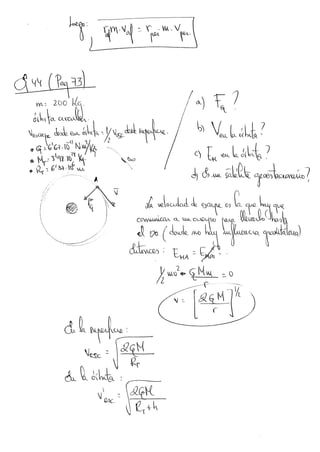 Luego: r_af·m·v_af = r_per·m·v_per.
44 (Pag 73)
m: 200 Kg
órbita circular.
v escape desde esa órbita = 1/2 v_esc desde superficie.
• G: 6'67·10⁻¹¹ Nm²/Kg²
• M_T:
• R_T: 6'37·10⁶ m
a) F_G?
b) V en la órbita?
c) E_M en la órbita?
d) Es un satélite geoestacionario?
A
F_G
v
∞
La velocidad de escape es la que hay que
comunicar a un cuerpo para llevarlo hasta
el ∞ (donde no hay influencia gravitatoria)
Entonces: E_MA = E_M∞
1/2 mv² - GMm/r = 0
v = [2GM/r]^1/2
En la superficie:
v_esc = √(2GM/R_T)
En la órbita:
v'_esc = √(2GM/(R_T+h))